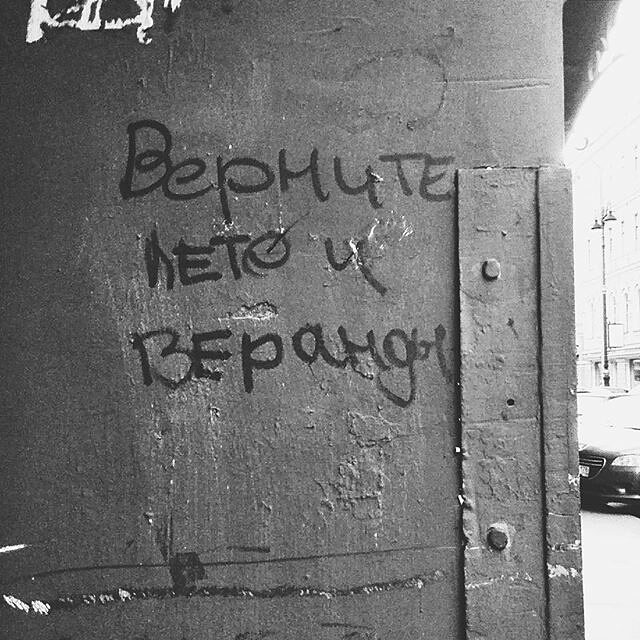 Верните
лето и
веранды